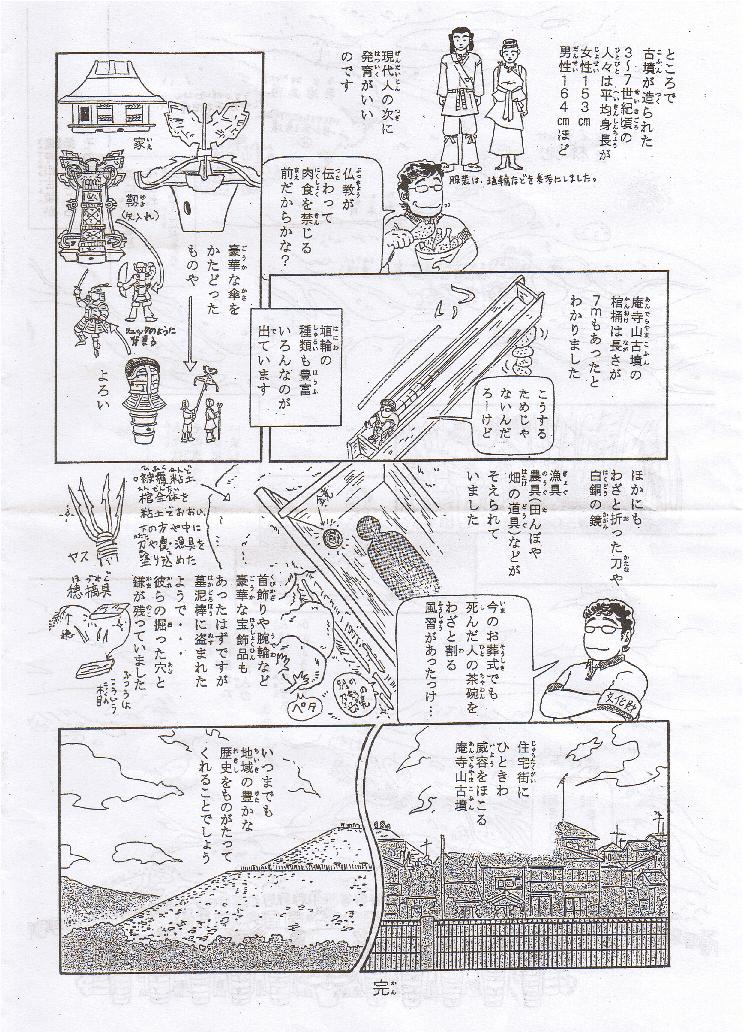 ところで
古墳が造られた
3～7世紀頃の
人々は平均身長が
女性153cm
男性164cmほど
現代人の次に
発育がいい
のです
服装は、埴輪などを参考にしました。
仏教が
伝わって
肉食を禁じる
前だからかな？
庵寺山古墳の
棺桶は長さが
7mもあったと
わかりました
こうする
ためじゃ
ないんだ
ろーけど
埴輪の
種類も豊富
いろんなのが
出ています
豪華な傘を
かたどった
ものや
家
靱
(矢入れ)
よろい
ほかにも
わざと折った刀や
白銅の鏡
漁具
農具(田んぼや
畑の道具)などが
そえられて
いました
鏡
今のお葬式でも
死んだ人の茶碗を
わざと割る
風習があったっけ…
文化財
首飾りや腕輪など
豪華な宝飾品も
あったはずですが
墓泥棒に盗まれた
ようで・・・
彼らの掘った穴と
鎌が残っていました
ペタ
棺全体を
粘土でおおい
下の方や中に
刀や農、漁具を
塗り込めた
ヤス
住宅街に
ひときわ
威容をほこる
庵寺山古墳
いつまでも
地域の豊かな
歴史をものがたって
くれることでしょう
完